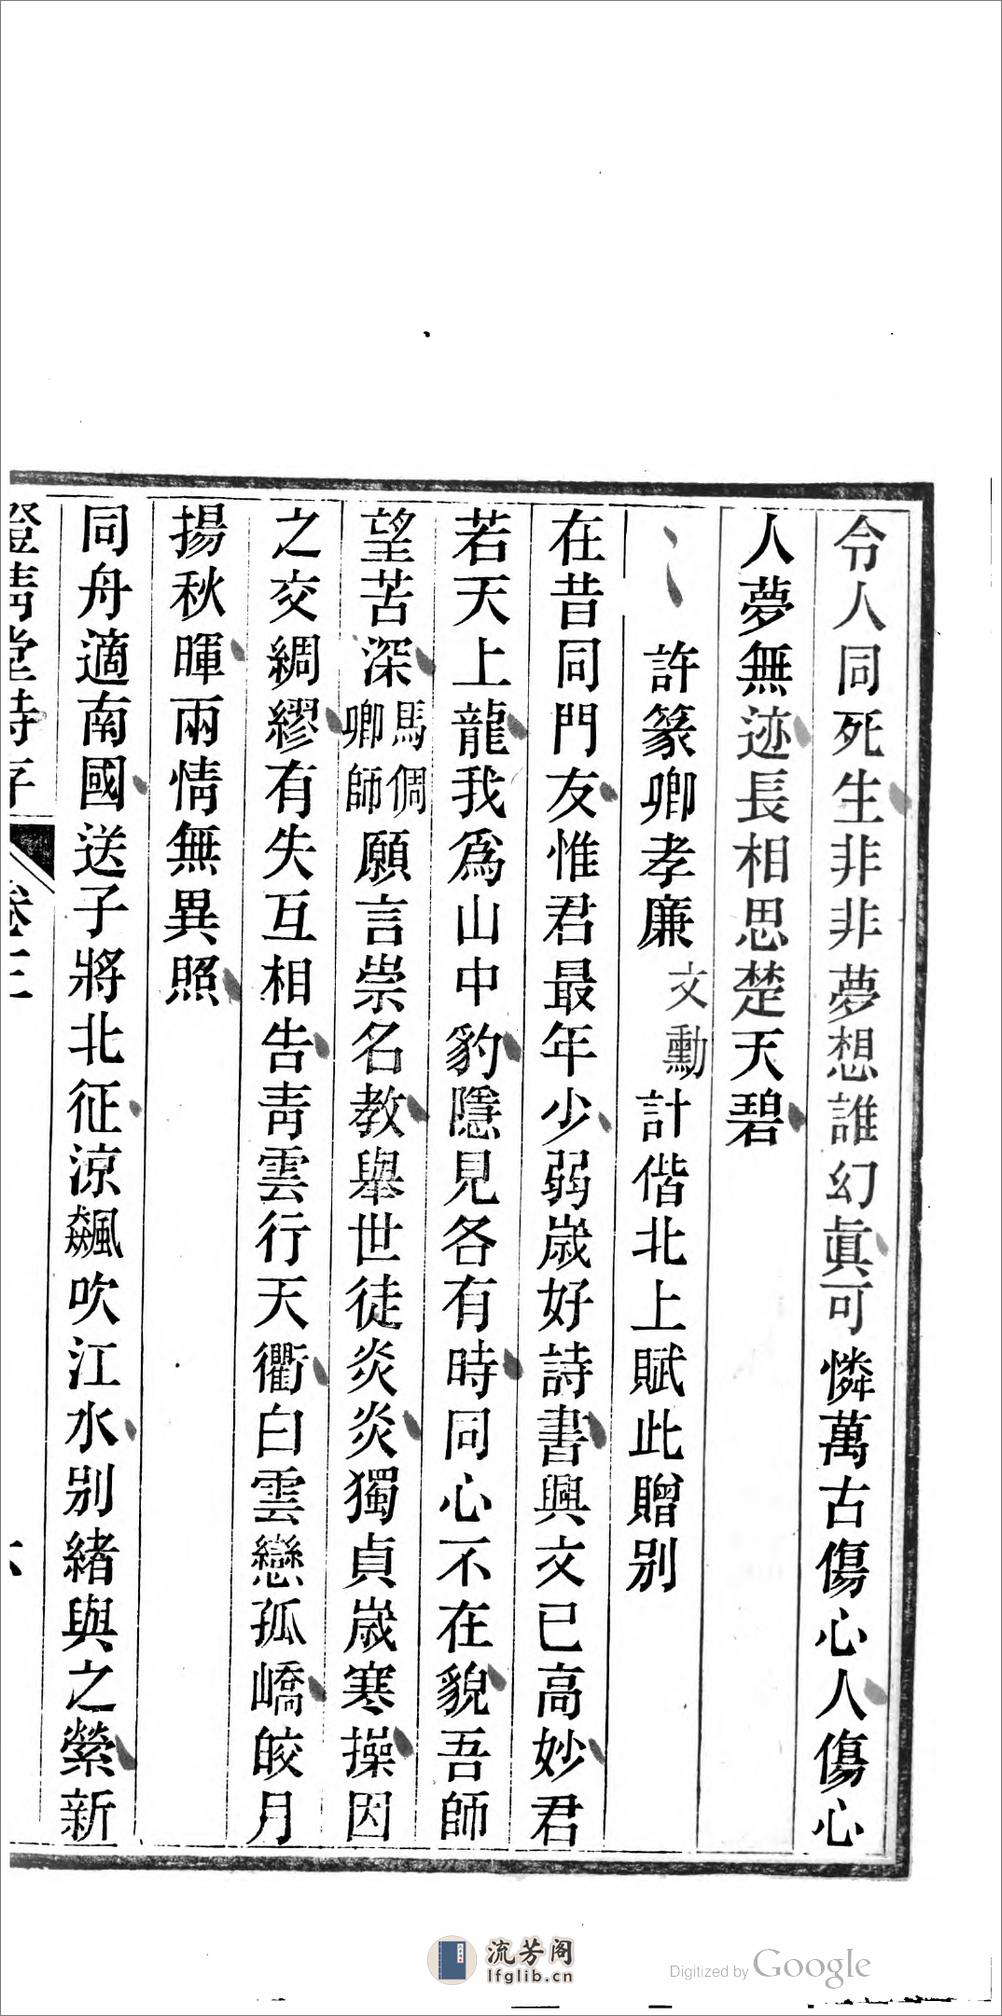 令人同死生非非夢想誰幻眞可憐萬古傷心人傷心
人夢無迹長相思楚天碧
許篆卿孝廉文勳計偕北上賦此贈別
在昔同門友惟君最年少弱歲好詩書興文已高妙君
若天上龍我爲山中豹隱見各有時同心不在貌吾師
望苦深馬倜卿師願言崇名教舉世徒炎炎獨貞歲寒操因
之交綢繆有失互相告靑雲行天衢白雲戀孤嶠皎月
揚秋暉兩情無異照
同舟適南國送子將北征涼飆吹江水別緒與之縈新
澄淸堂詩存 卷三 六
流芳阁
lfglib.cn
Digitized by Google